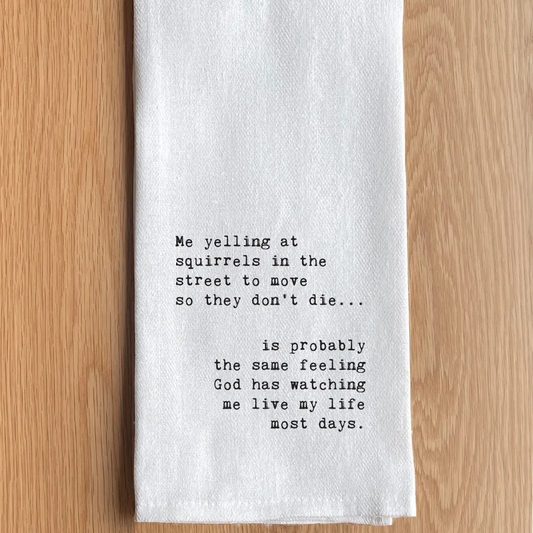 Me yelling at
squirrels in the
street to move
so they don't die...
is probably
the same feeling
God has watching
me live my life
most days.